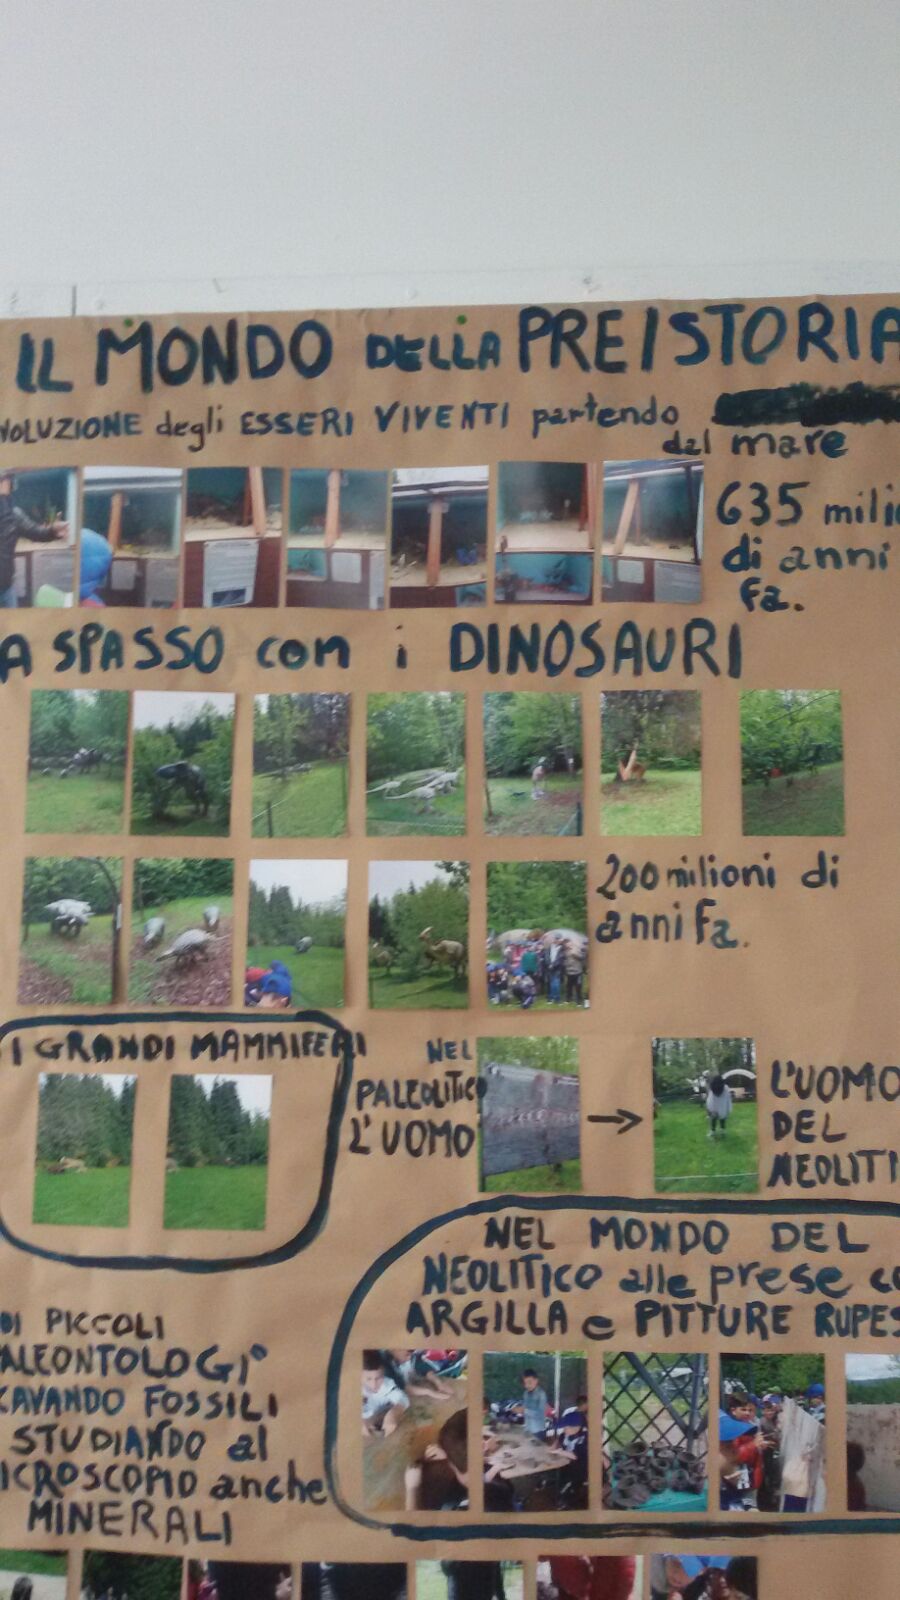 IL MONDO DELLA PREISTORIA
VOLUZIONE degli ESSERI VIVENTI partendo
dal mare
635 milio
di anni
fa.
A SPASSO con i DINOSAURI
200 milioni di
anni fa.
I GRANDI MAMMIFERI
NEL
PALEOLITICO
L'UOMO
L'UOMO
DEL
NEOLITI
NEL MONDO DEL
NEOLITICO alle prese co
ARGILLA e PITTURE RUPES
DI PICCOLI
ALEONTOLOGI
CAVANDO FOSSILI
STUDIANDO al
ICROSCOPIO anche
MINERALI